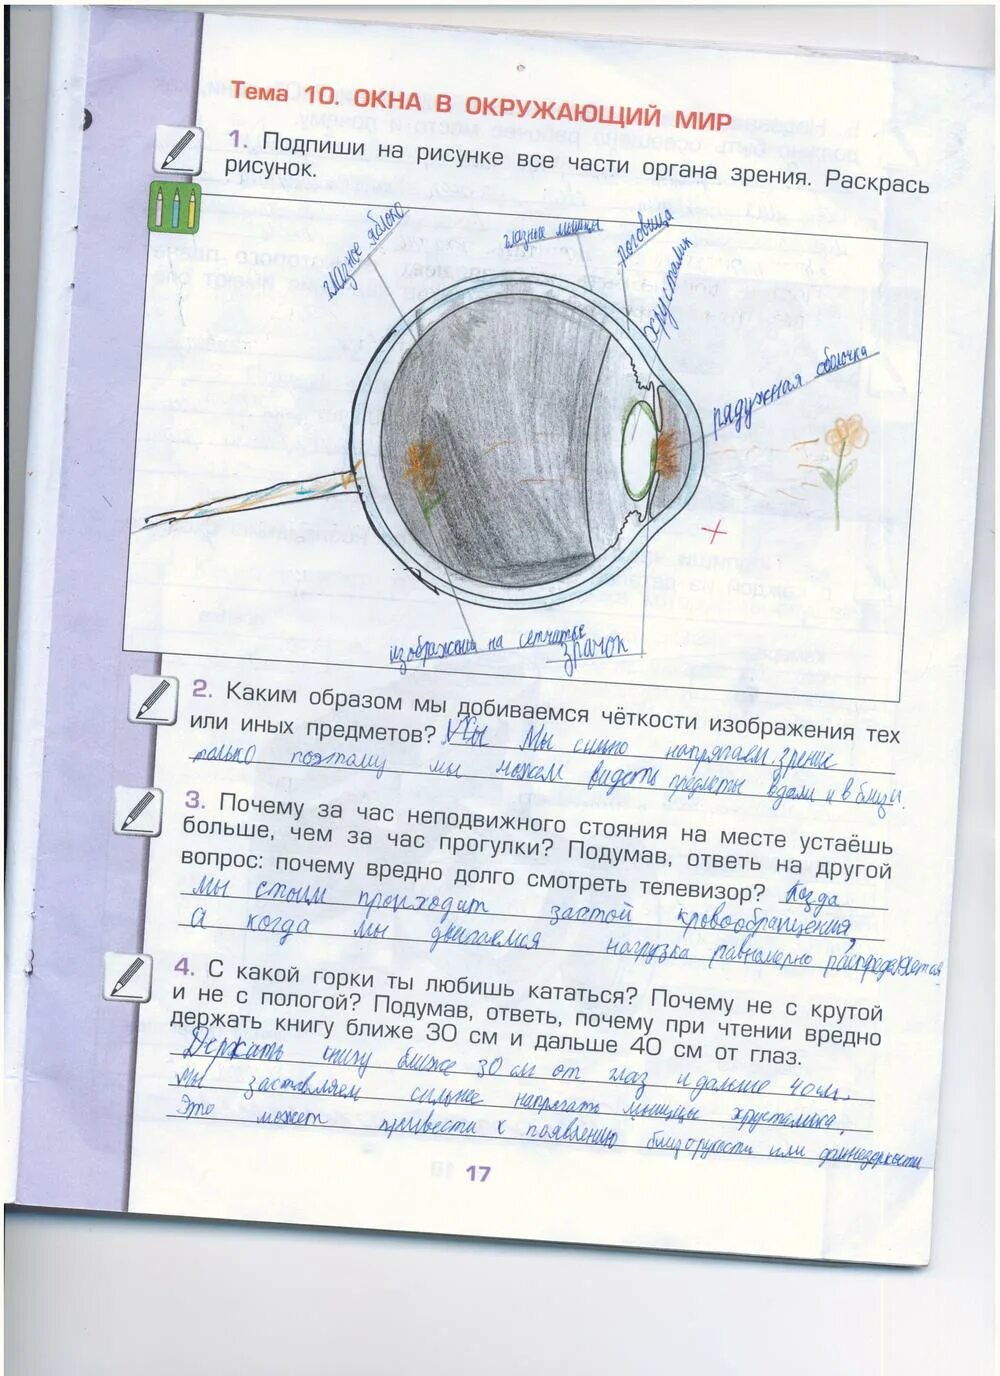 Тема 10. ОКНА В ОКРУЖАЮЩИЙ МИР
1. Подпиши на рисунке все части органа зрения. Раскрась
рисунок.
глазное яблоко
глазные мышцы
роговица
хрусталик
радужная оболочка
изображения на сетчатке
зрачок
2. Каким образом мы добиваемся чёткости изображения тех
или иных предметов? Мы сильно напрягаем зрение
только поэтому мы можем видеть предметы вдали и в близи.
3. Почему за час неподвижного стояния на месте устаёшь
больше, чем за час прогулки? Подумав, ответь на другой
вопрос: почему вредно долго смотреть телевизор? Когда
мы стоим происходит застой кровообращения,
а когда мы двигаемся нагрузка равномерно распределяется
4. С какой горки ты любишь кататься? Почему не с крутой
и не с пологой? Подумав, ответь, почему при чтении вредно
держать книгу ближе 30 см и дальше 40 см от глаз.
Держать книгу ближе 30 см от глаз и дальше 40 см.
Мы заставляем сильнее напрягать мышцы хрусталика.
Это может привести к появлению близорукости или дальнозоркости
17